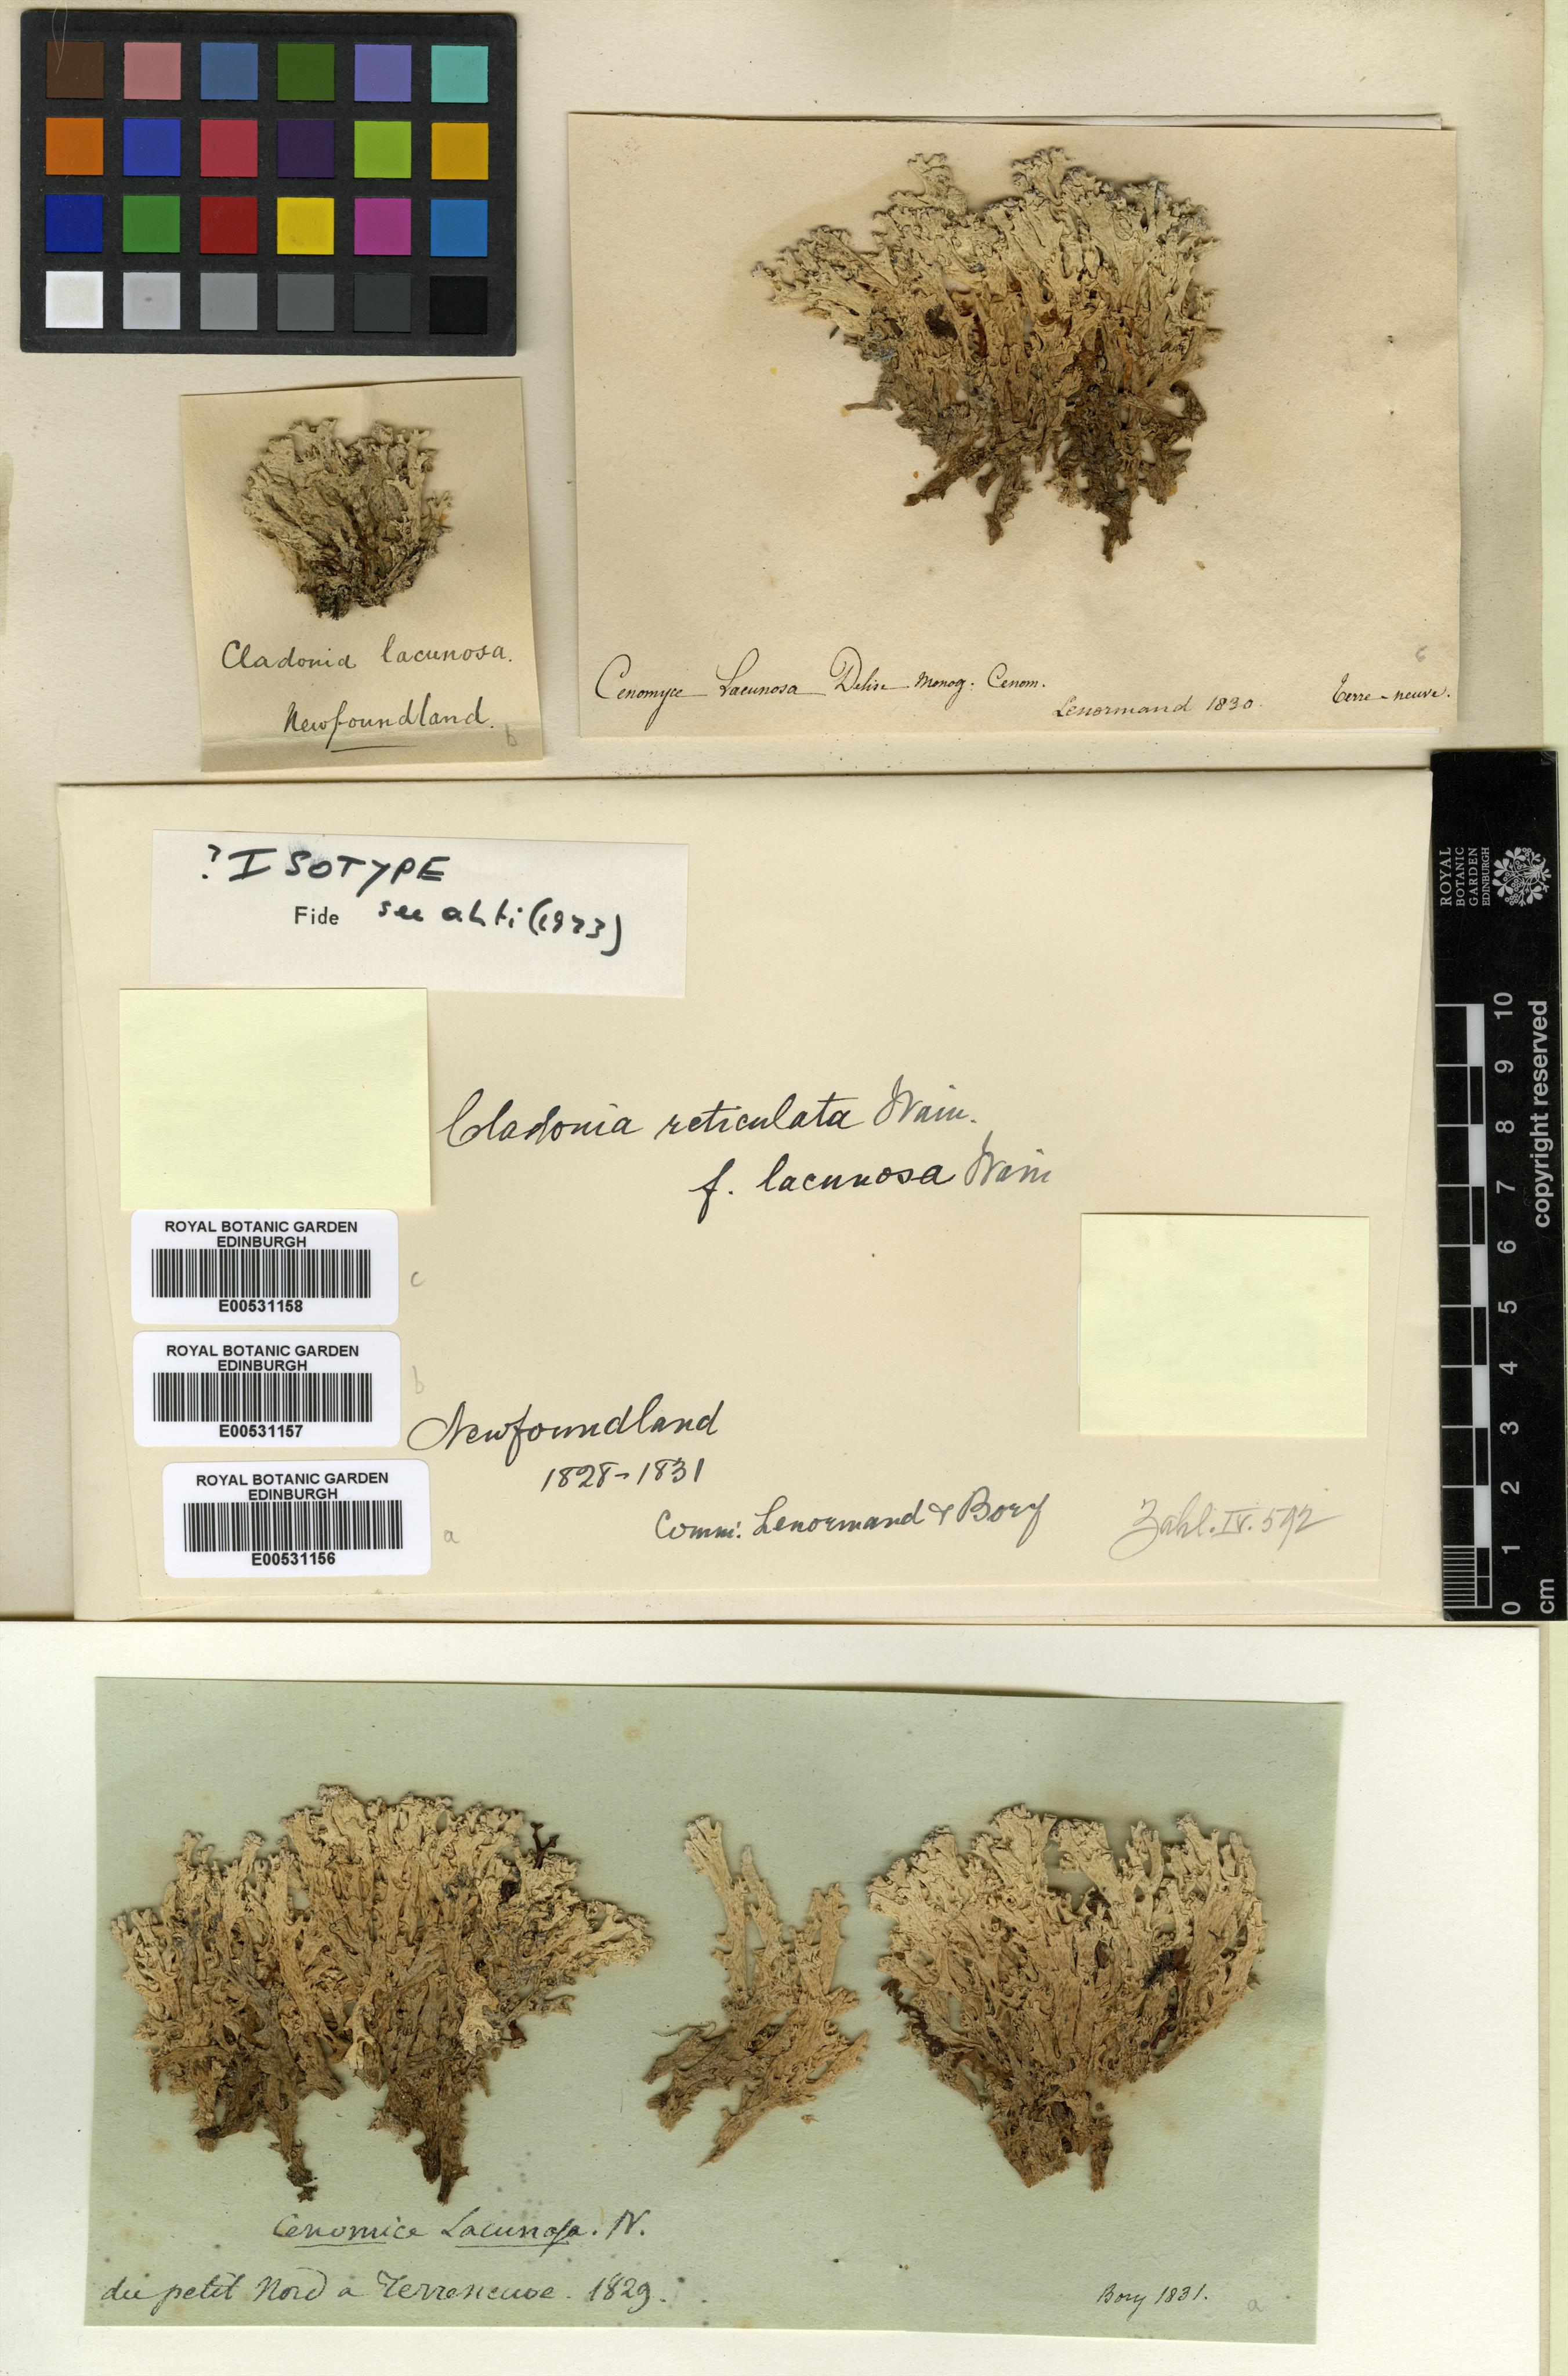 Cladonia lacunosa.
Newfoundland.
b
Cenomyce Lacunosa Delise Monog: Cenom.
Lenormand 1830.
Terre-neuve.
? ISOTYPE
Fide see ahti (1973)
Cladonia reticulata Wain.
f. lacunosa Wain
ROYAL BOTANIC GARDEN
EDINBURGH
E00531158
c
ROYAL BOTANIC GARDEN
EDINBURGH
E00531157
b
ROYAL BOTANIC GARDEN
EDINBURGH
E00531156
a
Newfoundland
1828-1831
Comm: Lenormand & Bory
Zahl. IV. 592
ROYAL
BOTANIC
GARDEN
EDINBURGH
copyright reserved
10
9
8
7
6
5
4
3
2
1
0
cm
Cenomice Lacunosa. N.
du petit Nord a Terreneuve. 1829.
Bory 1831.
a